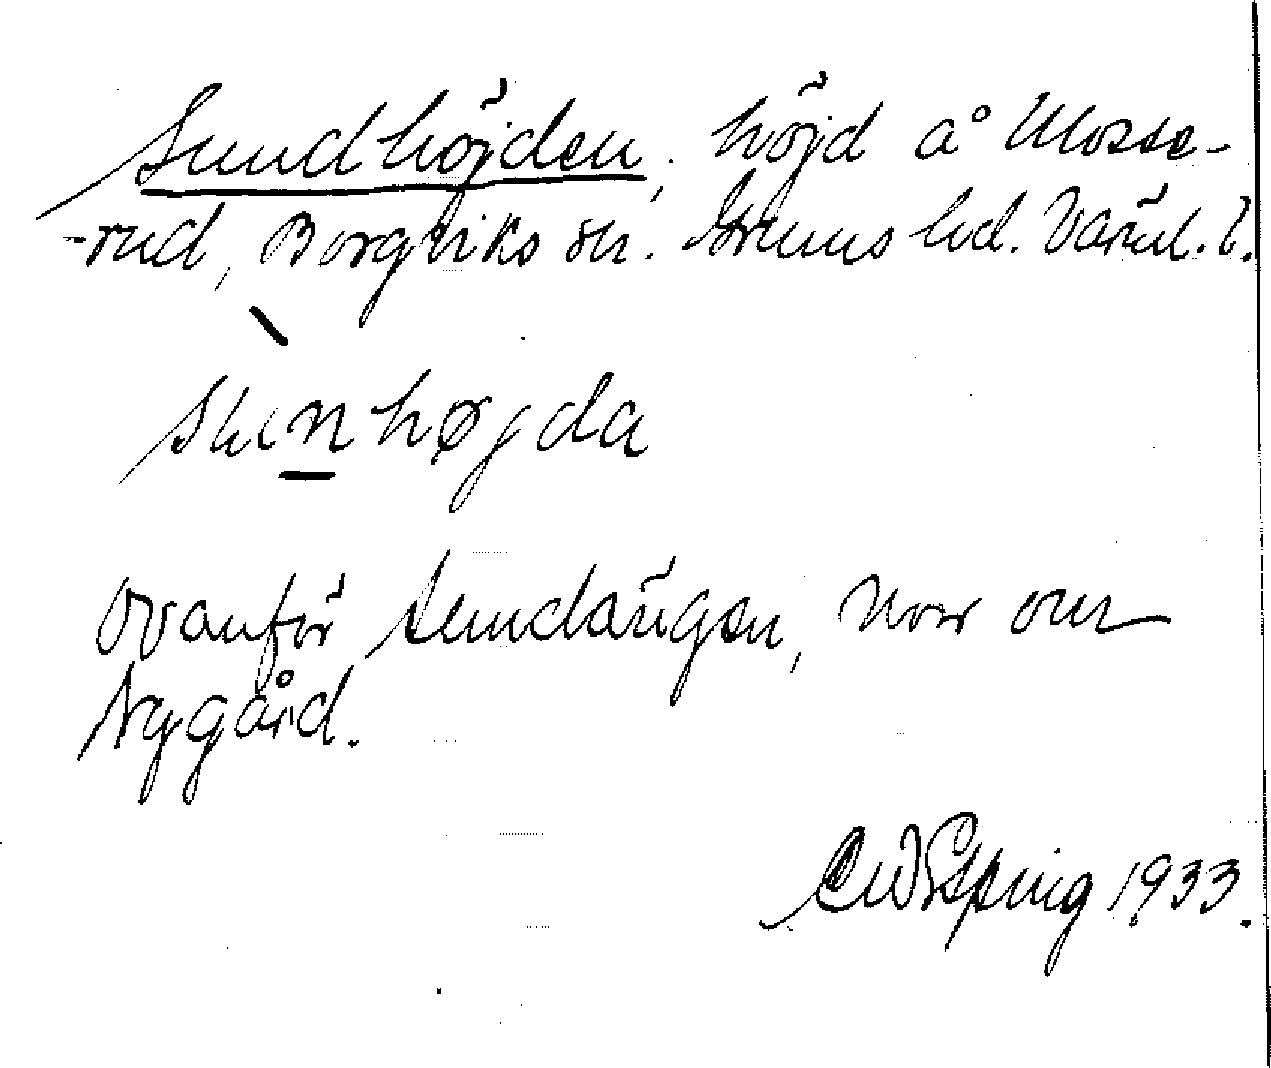 Sundhöjden, höjd å Mosse-
-rud, Borgviks sn. Grums hd. Värml. l.
højda
Ovanför Sundängen, norr om
Nygård.
1933.